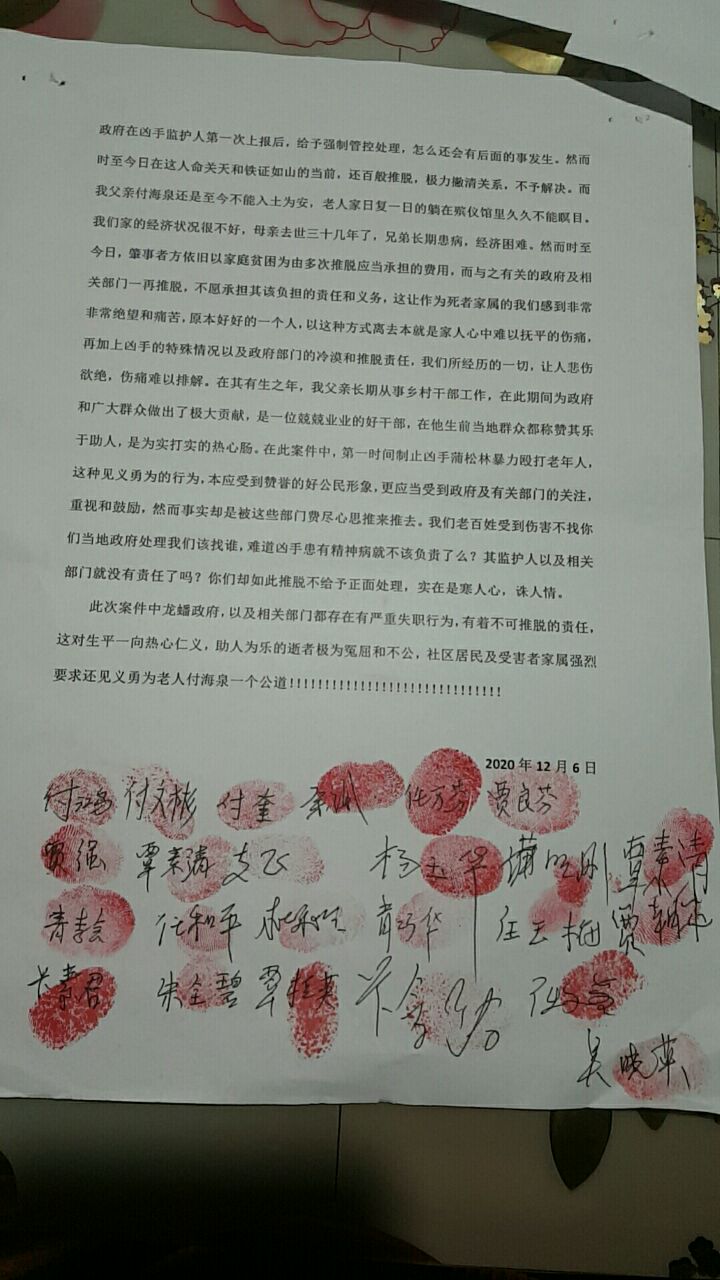 政府在凶手监护人第一次上报后，给予强制管控处理，怎么还会有后面的事发生。然而
时至今日在这人命关天和铁证如山的当前，还百般推脱，极力撇清关系，不予解决。而
我父亲付海泉还是至今不能入土为安，老人家日复一日的躺在殡仪馆里久久不能瞑目。
我们家的经济状况很不好，母亲去世三十几年了，兄弟长期患病，经济困难。然而时至
今日，肇事者方依旧以家庭贫困为由多次推脱应当承担的费用，而与之有关的政府及相
关部门一再推脱，不愿承担其该负担的责任和义务，这让作为死者家属的我们感到非常
非常绝望和痛苦，原本好好的一个人，以这种方式离去本就是家人心中难以抚平的伤痛，
再加上凶手的特殊情况以及政府部门的冷漠和推脱责任，我们所经历的一切，让人悲伤
欲绝，伤痛难以排解。在其有生之年，我父亲长期从事乡村干部工作，在此期间为政府
和广大群众做出了极大贡献，是一位兢兢业业的好干部，在他生前当地群众都称赞其乐
于助人，是为实打实的热心肠。在此案件中，第一时间制止凶手蒲松林暴力殴打老年人，
这种见义勇为的行为，本应受到赞誉的好公民形象，更应当受到政府及有关部门的关注，
重视和鼓励，然而事实却是被这些部门费尽心思推来推去。我们老百姓受到伤害不找你
们当地政府处理我们该找谁，难道凶手患有精神病就不该负责了么？其监护人以及相关
部门就没有责任了吗？你们却如此推脱不给予正面处理，实在是寒人心，诛人情。
此次案件中龙蟠政府，以及相关部门都存在有严重失职行为，有着不可推脱的责任，
这对生平一向热心仁义，助人为乐的逝者极为冤屈和不公，社区居民及受害者家属强烈
要求还见义勇为老人付海泉一个公道!!!!!!!!!!!!!!!!!!!!!!!!!!!!!!
2020年12月6日
付鸿 付文彬 付奎 任万芬 贾良芬
贾强 覃素清
任和平 任云梅
朱全碧
吴晓萍